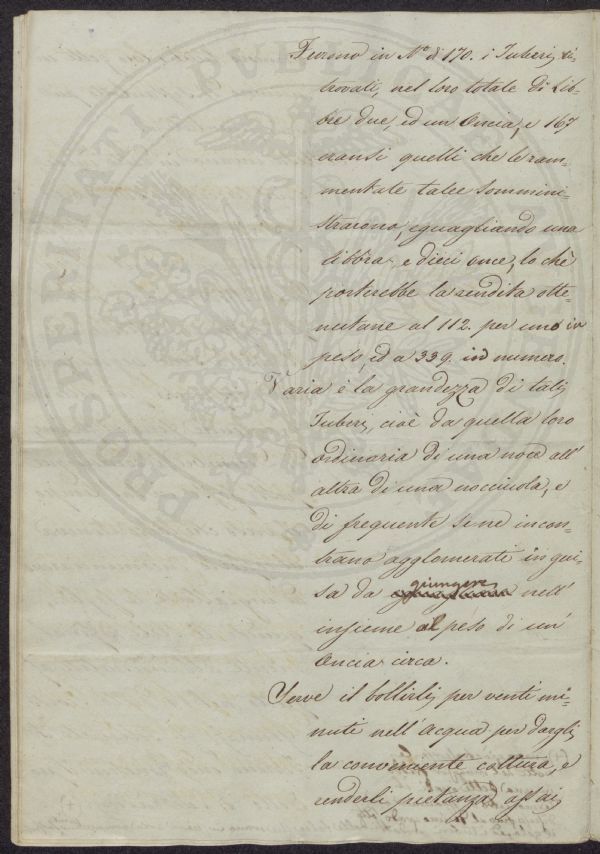 Furono in N.º di 170. i Tuberi, ri-
trovati, nel loro totale di Lib-
bre due, ed un Oncia, e 167
eransi quelli che le ram-
mentate talee sommini-
strarono, eguagliando una
libbra, e dieci once, lo chè
porterebbe la rendita otte-
nutane al 112. per uno in
peso, ed a 339. in numero.
Varia è la grandezza di tali
Tuberi, cioè da quella loro
ordinaria di una noce all'
altra di una nocciuola, e
di frequente se ne incon-
trano agglomerati in gui-
sa da giungere nell'
insieme al peso di un'
Oncia circa.
Serve il bollirli per venti mi-
nuti nell'Acqua per dargli
la conveniente cottura, e
renderli pietanza assai
PROSPERITATI PUBLICAE